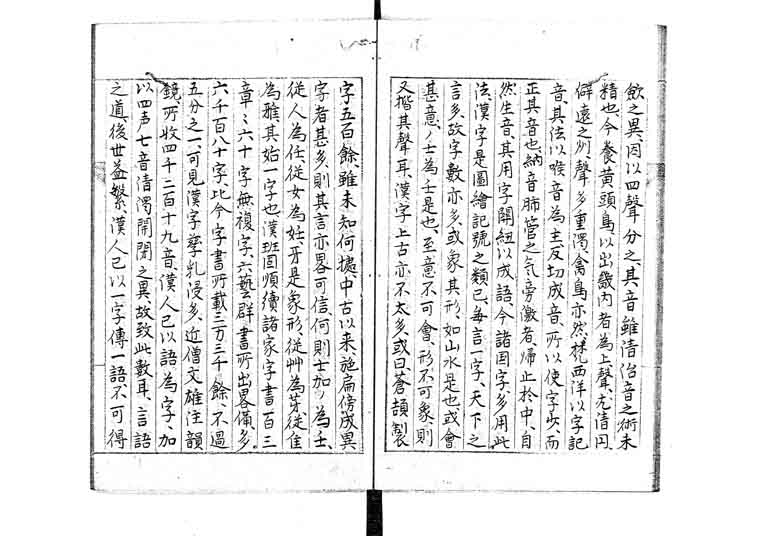 飲之異、因以四聲分之、其音雖清治音之術未
精也、今養黄頭鳥、以出畿内者為上聲尤清円、
僻遠之州、聲多重濁、禽鳥亦然、梵西洋以字記
音、其法以喉音為主、反切成音、所以使字
正其音也、納音肺管之気旁激者、帰止於中、自
然生音、其用字開紐以成語、今諸国字多用此
法、漢字是圖繪記號之類已、毎言一字、天下之
言多、故字數亦多、或象其形、如山水是也、或會
甚意、ノ士為壬是也、至意不可會、形不可象、則
又揩其聲耳、漢字上古亦不太多、或曰、蒼頡製
字五百餘、雖未知何據、中古以来、施扁傍成異
字者甚多、則其言亦畧可信、何則士加ノ為壬、
從人為任、從女為妊、牙是象形、從艸為芽、從隹
為雅、其始一字也、漢班固順續諸家字書百三
章、々六十字無複字、六藝群書所出畧備、多
六千百八十字、比今字書所載三万三千餘、不過
五分之一、可見漢字孳乳浸多、近僧文雄注韻
鏡、所收四千二百十九音、漢人已以語為字、加
以四声七音清濁開閉之異、故致此數耳、言語
之道、後世益繁、漢人已以一字傳一語、不可得